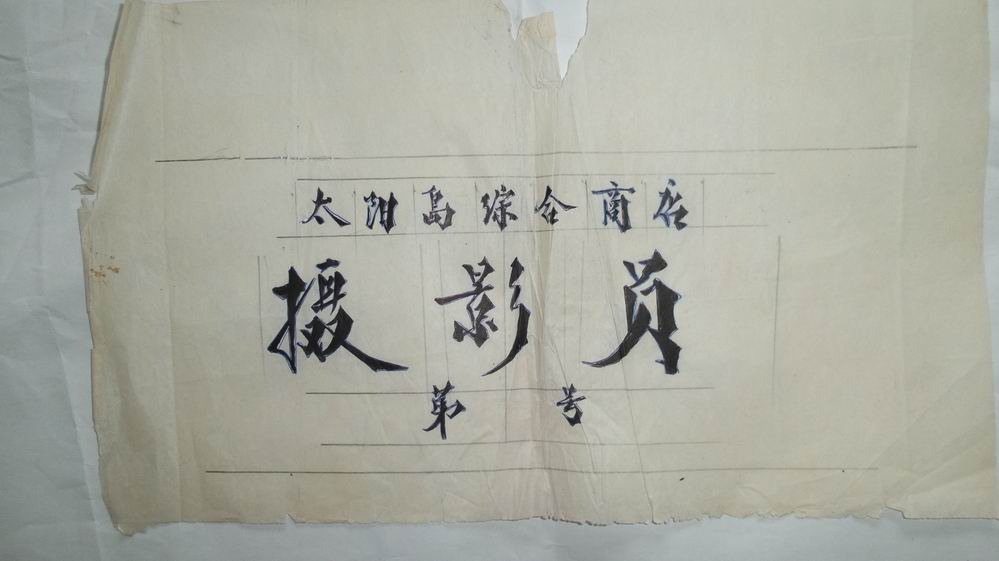 太阳岛综合商店
摄影员
第 号